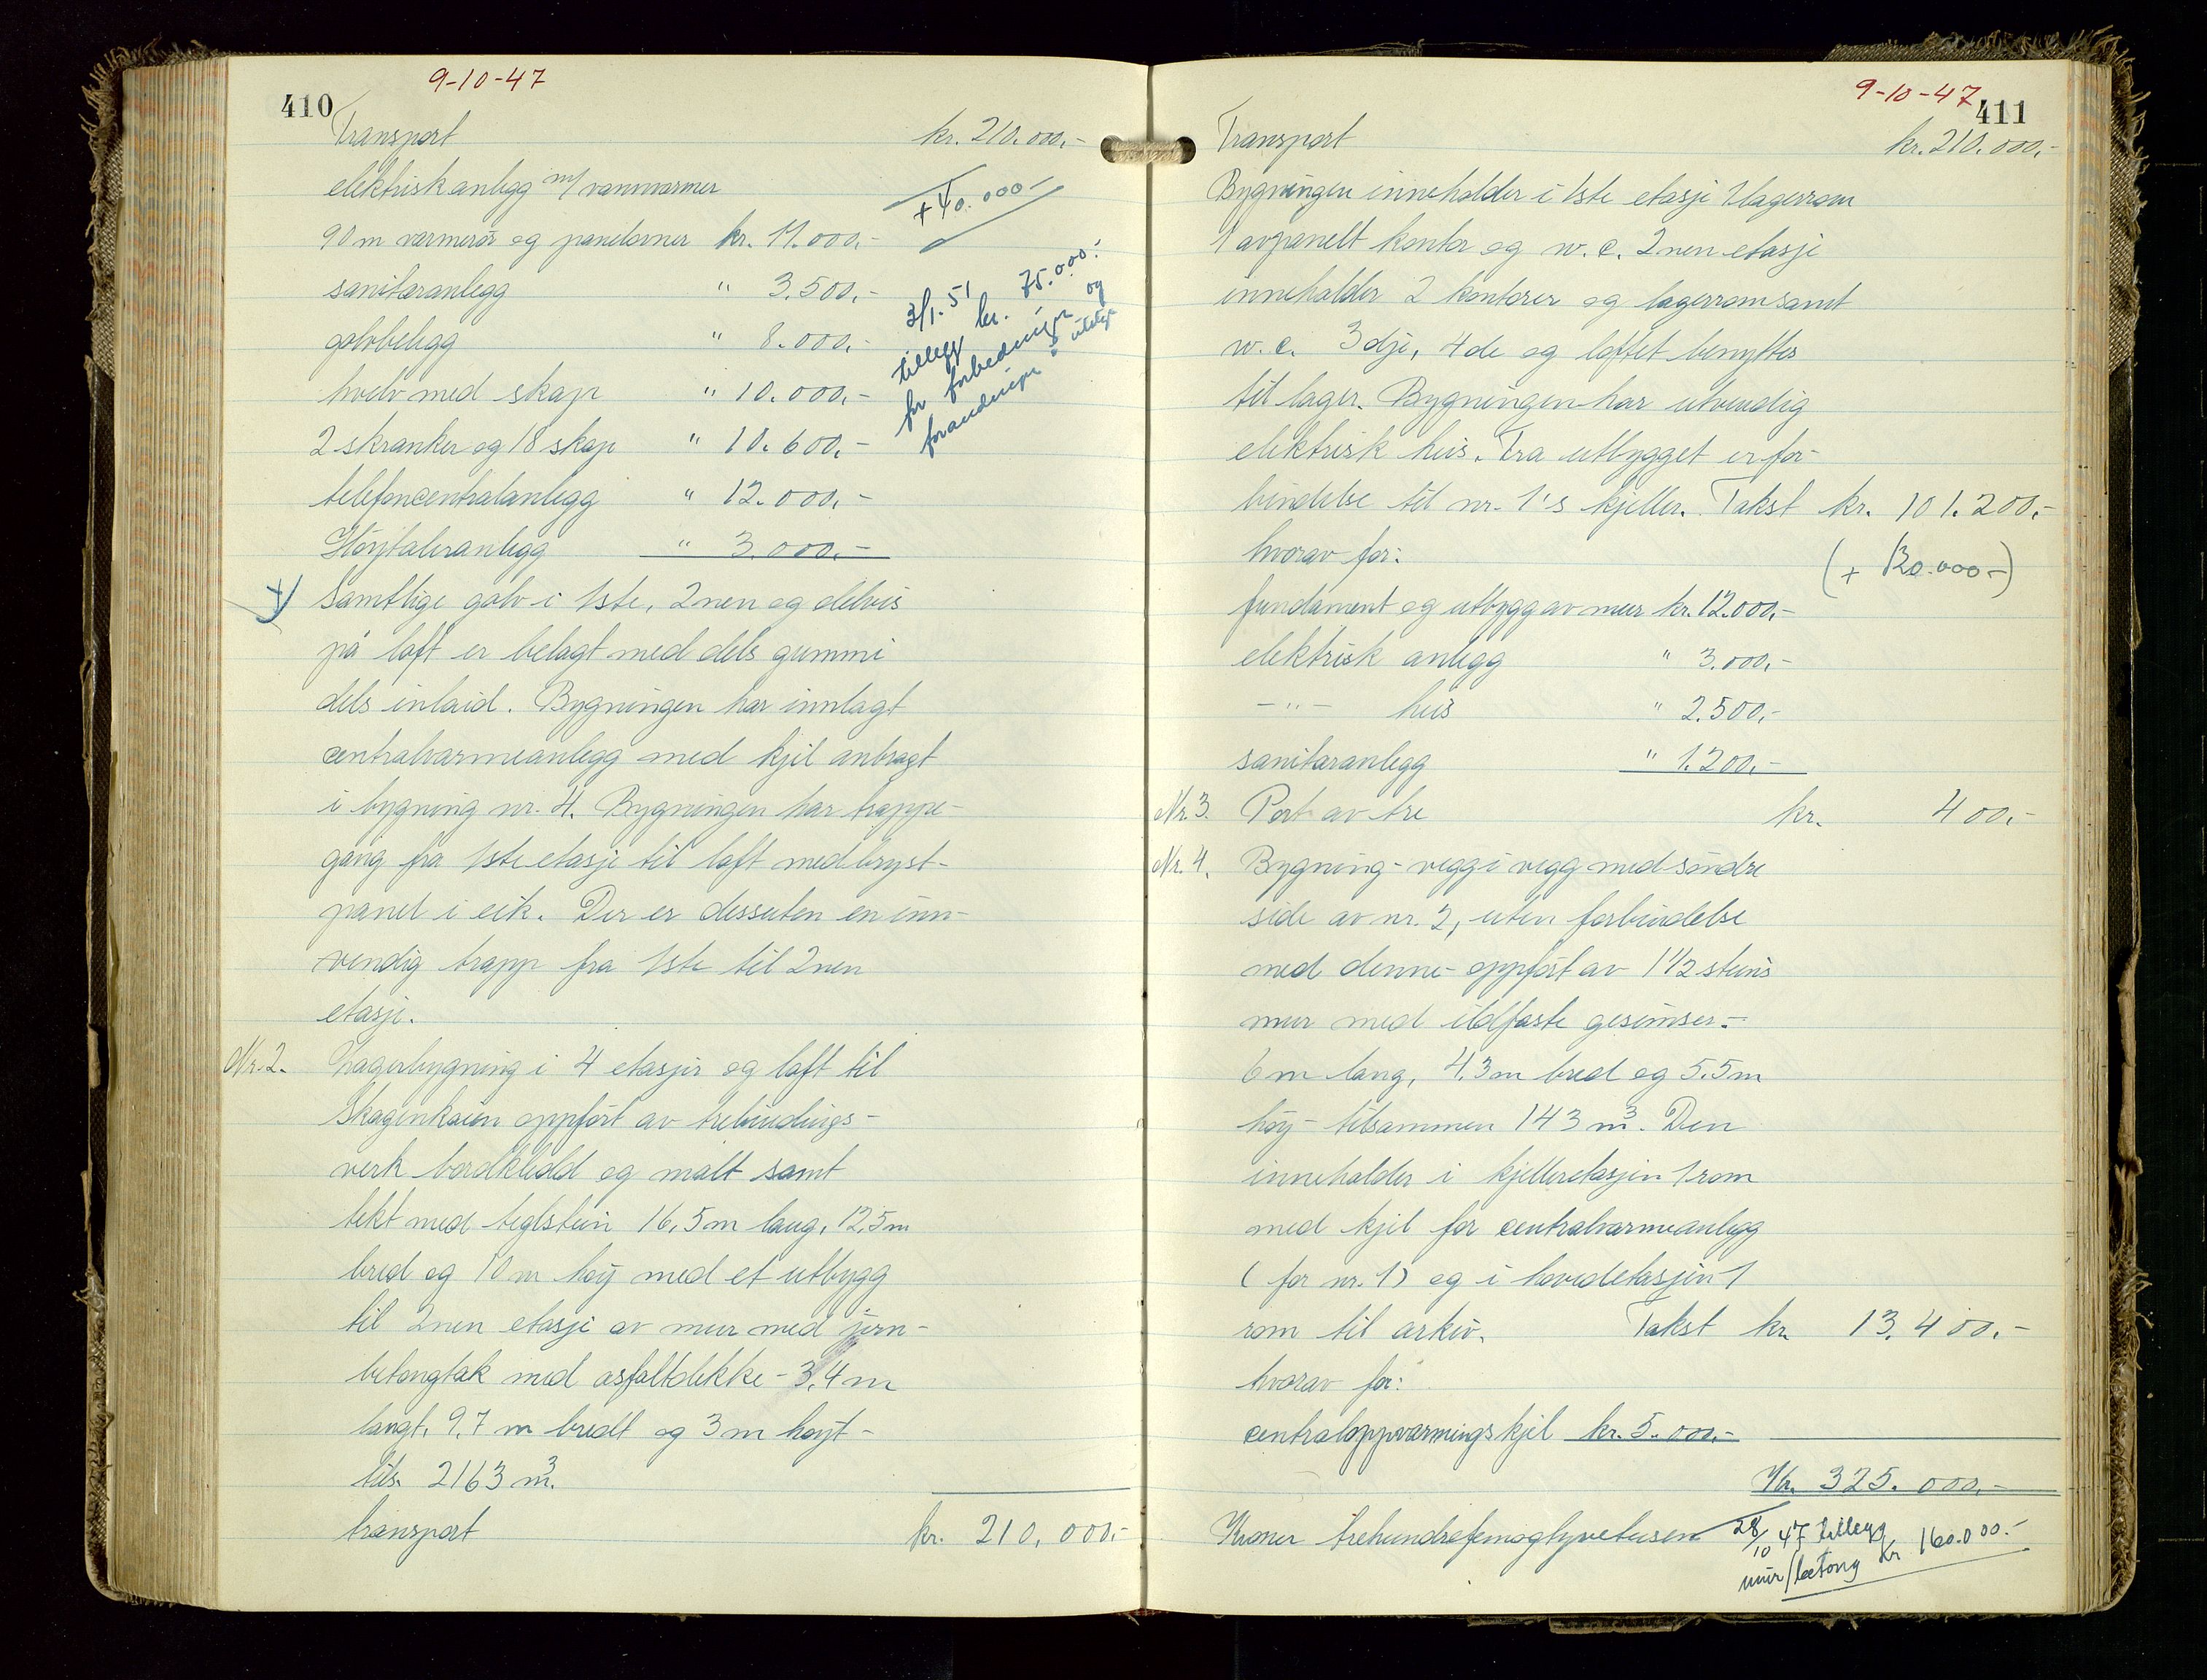 410
9-10-47
Transport kr. 210.000,-
elektriskanlegg m/ vannvarmer
90 m varmerör og panelovner kr. 11.000,-
+ 40.000-
sanitæranlegg " 3.500,-
golvbelegg " 8.000,-
hvelv med skap " 10.000,-
2 skranker og 18 skap " 10.600,-
telefoncentralanlegg " 12.000,-
Höytaleranlegg " 3.000,-
3/1. 51
tillegg kr. 75.000.-
for forbedringer og
forandringer
Samtlige golv i 1ste, 2nen og delvis
på loft er belagt med dels gummi
dels inlaid. Bygningen har innlagt
centralvarmeanlegg med kjel anbragt
i bygning nr. 4. Bygningen har trappe-
gang fra 1ste etasje til loft med bryst-
panel i eik. Der er dessuten en inn-
vendig trapp fra 1ste til 2nen
etasje.
Nr. 2. Lagerbygning i 4 etasjer og loft til
Skagenkaien oppfört av trebindings-
verk bordkledd og malt samt
tekt med teglstein 16,5 m lang, 12,5 m
bred og 10 m höy med et utbygg
til 2nen etasje av mur med jern-
betongtak med asfaltdekke - 3,4 m
langt, 9,7 m bredt og 3 m höyt -
tils. 2163 m³.
transport kr. 210.000,-
9-10-47
411
Transport kr. 210.000,-
Bygningen inneholder i 1ste etasje 1 lagerrom
1 avpanelt kontor og w.c. 2nen etasje
inneholder 2 kontorer og lagerrom samt
w.c. 3dje, 4de og loftet benyttes
til lager. Bygningen har utvendig
elektrisk heis. Fra utbygget er for-
bindelse til nr. 1's kjeller. Takst kr. 101.200,-
hvorav for: (+ 120.000-)
fundament og utbygg av mur kr. 12.000,-
elektrisk anlegg " 3.000,-
- " - heis " 2.500,-
sanitæranlegg " 1.200,-
Nr. 3. Port av tre kr. 400,-
Nr. 4. Bygning - vegg i vegg med söndre
side av nr. 2, uten forbindelse
med denne - oppfört av 1 1/2 steins
mur med ildfaste gesimser. -
6 m lang, 4,3 m bred og 5,5 m
höy - tilsammen 143 m³. Den
inneholder i kjelleretasjen 1 rom
med kjel for centralvarmeanlegg
(for nr. 1) og i hovedetasjen 1
rom til arkiv. Takst kr. 13.400,-
hvorav for:
centraloppvarmingskjel kr. 5.000,-
Kr. 325.000,-
Kroner trehundreofemogtyvetusen
28/10 47 tillegg
mur/betong kr 160.000.-